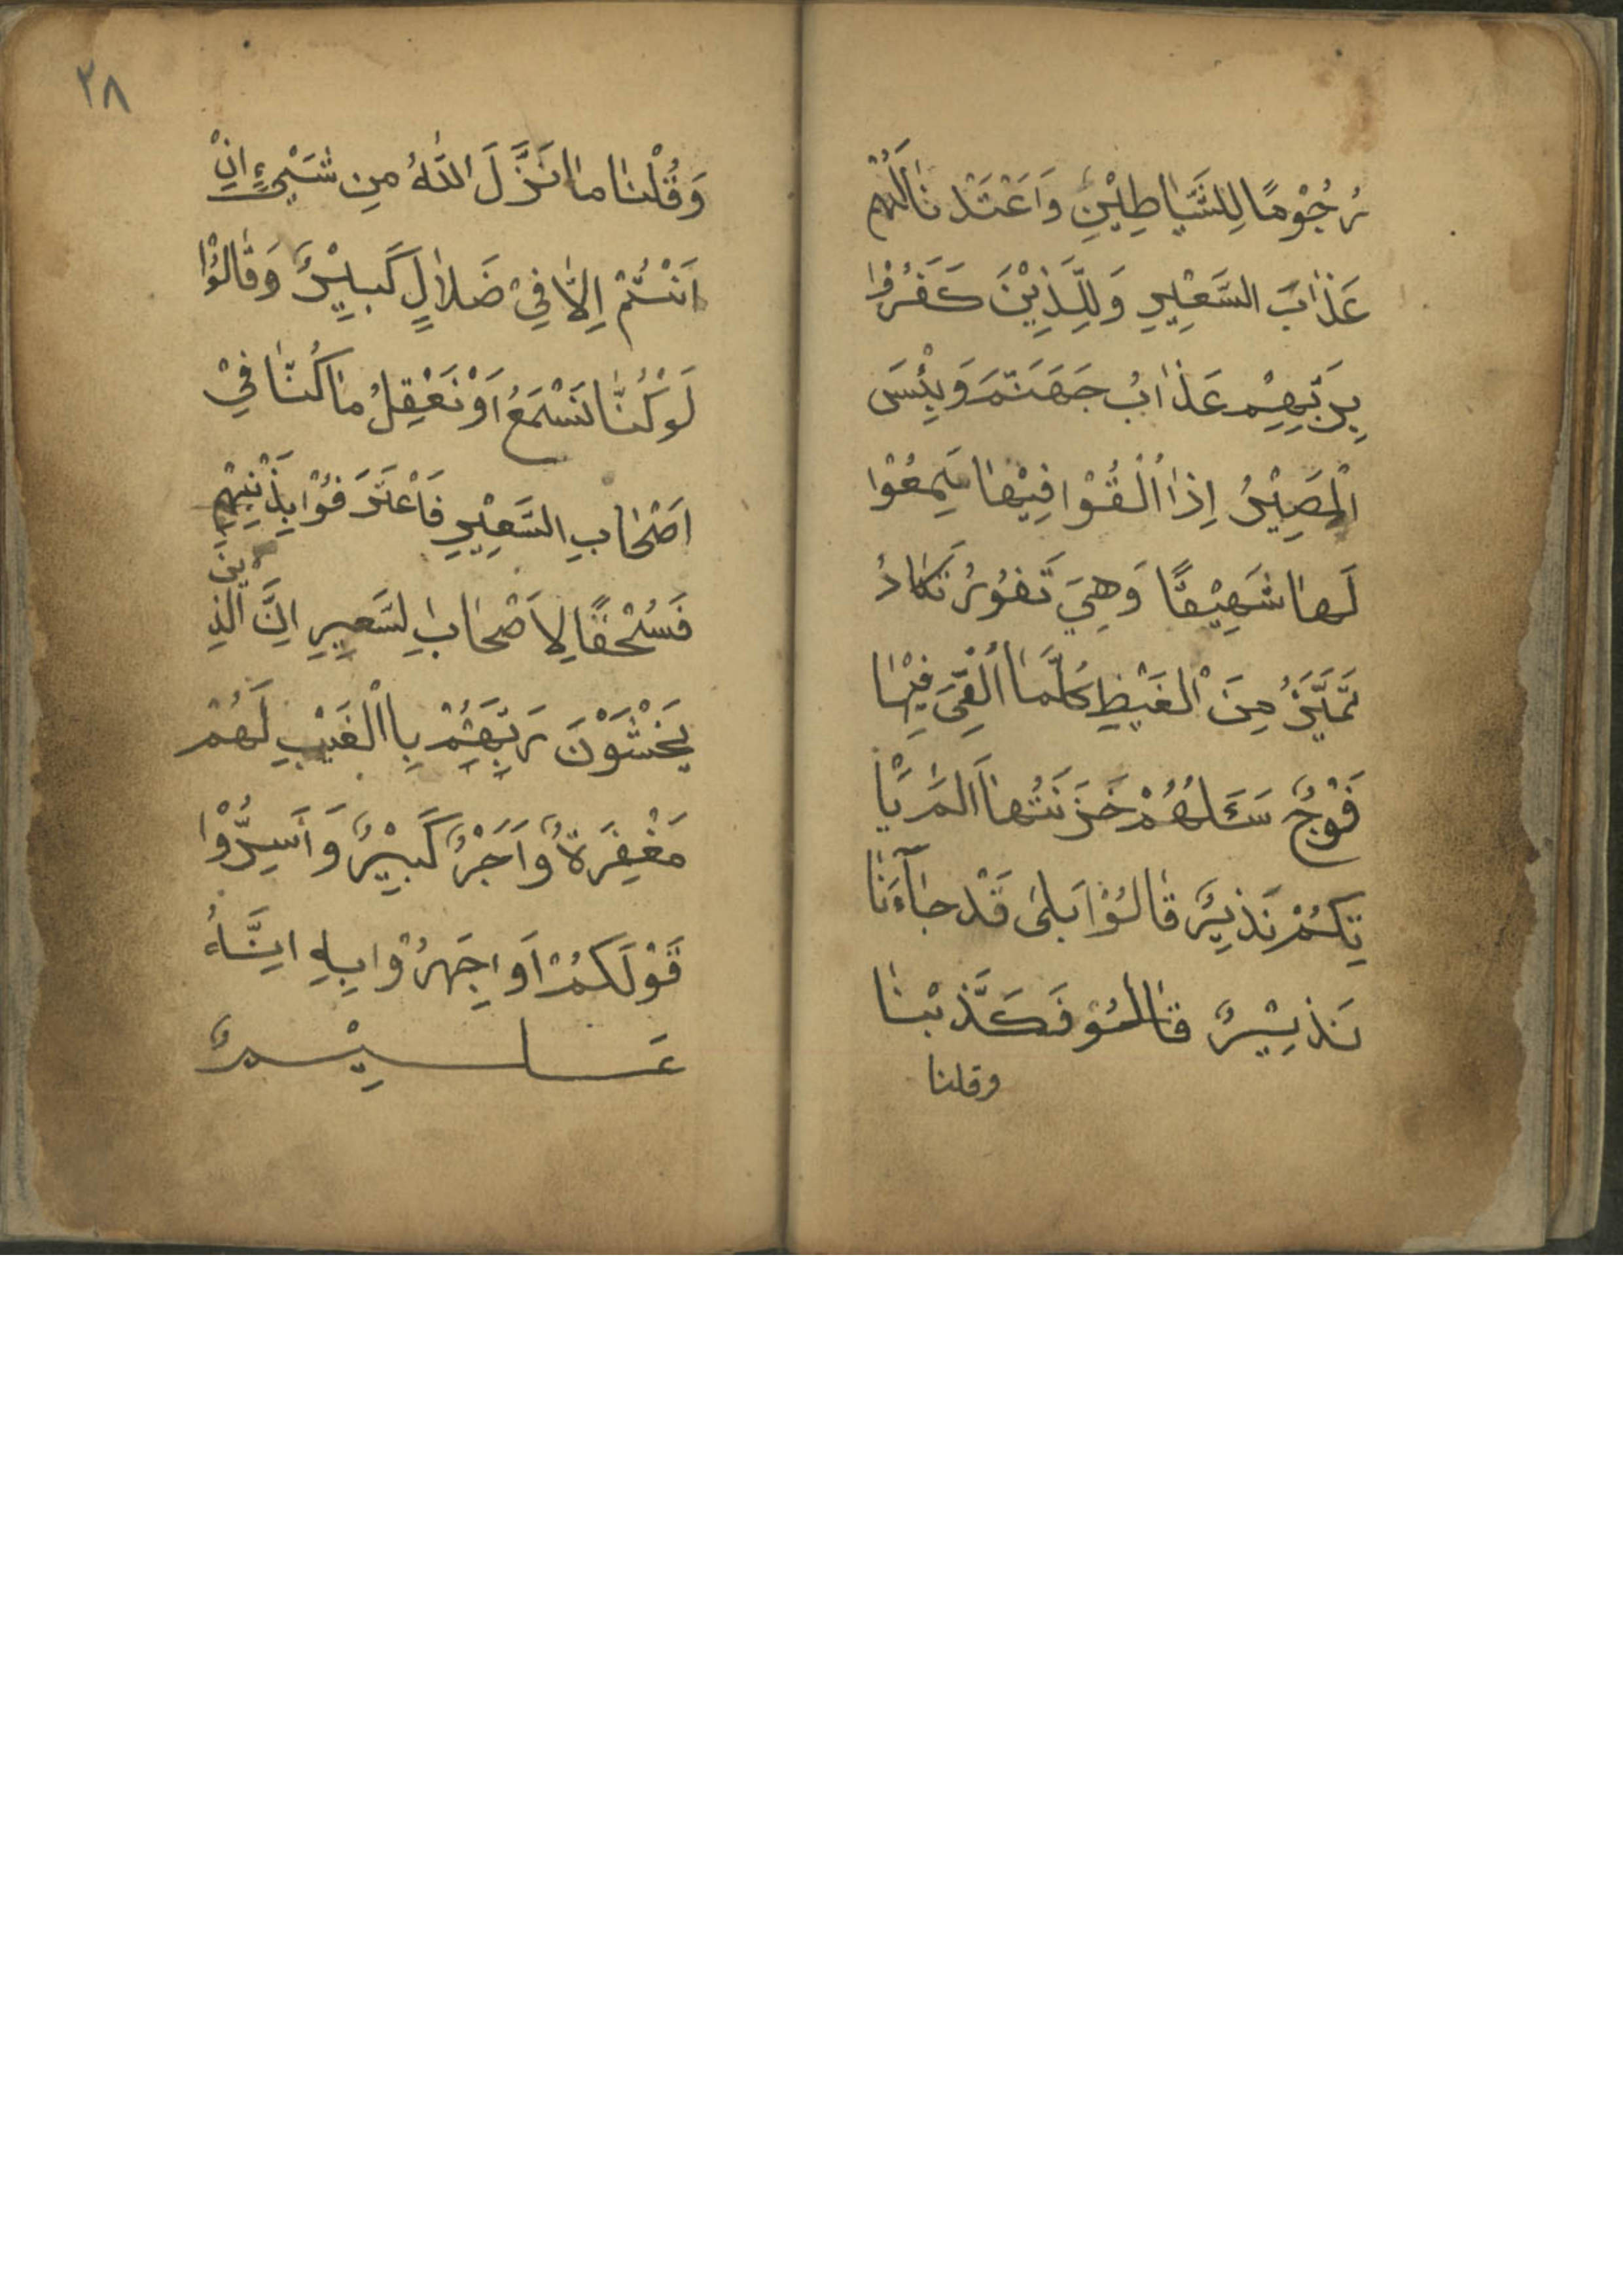 رُجُوْمًا لِلشَّيَاطِيْنِ وَاَعْتَدْنَا لَهُمْ
عَذَابَ السَّعِيْرِ وَلِلَّذِيْنَ كَفَرُوْا
بِرَبِّهِمْ عَذَابُ جَهَنَّمَ وَبِئْسَ
الْمَصِيْرُ اِذَا اُلْقُوْا فِيْهَا سَمِعُوْا
لَهَا شَهِيْقًا وَهِيَ تَفُوْرُ تَكَادُ
تَمَيَّزُ مِنَ الْغَيْظِ كُلَّمَا اُلْقِيَ فِيْهَا
فَوْجٌ سَئَلَهُمْ خَزَنَتُهَا اَلَمْ يَاْ
تِكُمْ نَذِيْرٌ قَالُوْا بَلىٰ قَدْ جَآءَنَا
نَذِيْرٌ قالوْ فَكَذَّبْنَا
وقلنا
٢٨
وَقُلْنَا مَا نَزَّلَ اللّٰهُ مِن شَيْءٍ اِنْ
اَنْتُمْ اِلَّا فِيْ ضَلَالٍ كَبِيْرٌ وَقَالُوْا
لَوْ كُنَّا نَسْمَعُ اَوْ نَعْقِلُ مَا كُنَّا فِيْ
اَصْحَابِ السَّعِيْرِ فَاعْتَرَفُوْا بِذَنْبِهِمْ
فَسُحْقًا لِاَصْحَابِ لسَّعِيرِ اِنَّ الَّذِين
يَخْشَوْنَ رَبَّهُمْ بِاالْغَيْبِ لَهُمْ
مَغْفِرَةٌ وَاَجْرٌ كَبِيْرٌ وَاَسِرُّوْا
قَوْلَكُمْ اَوِ اجْهَرُوْا بِهِ اِنَّهُ
عَلِيْمٌ